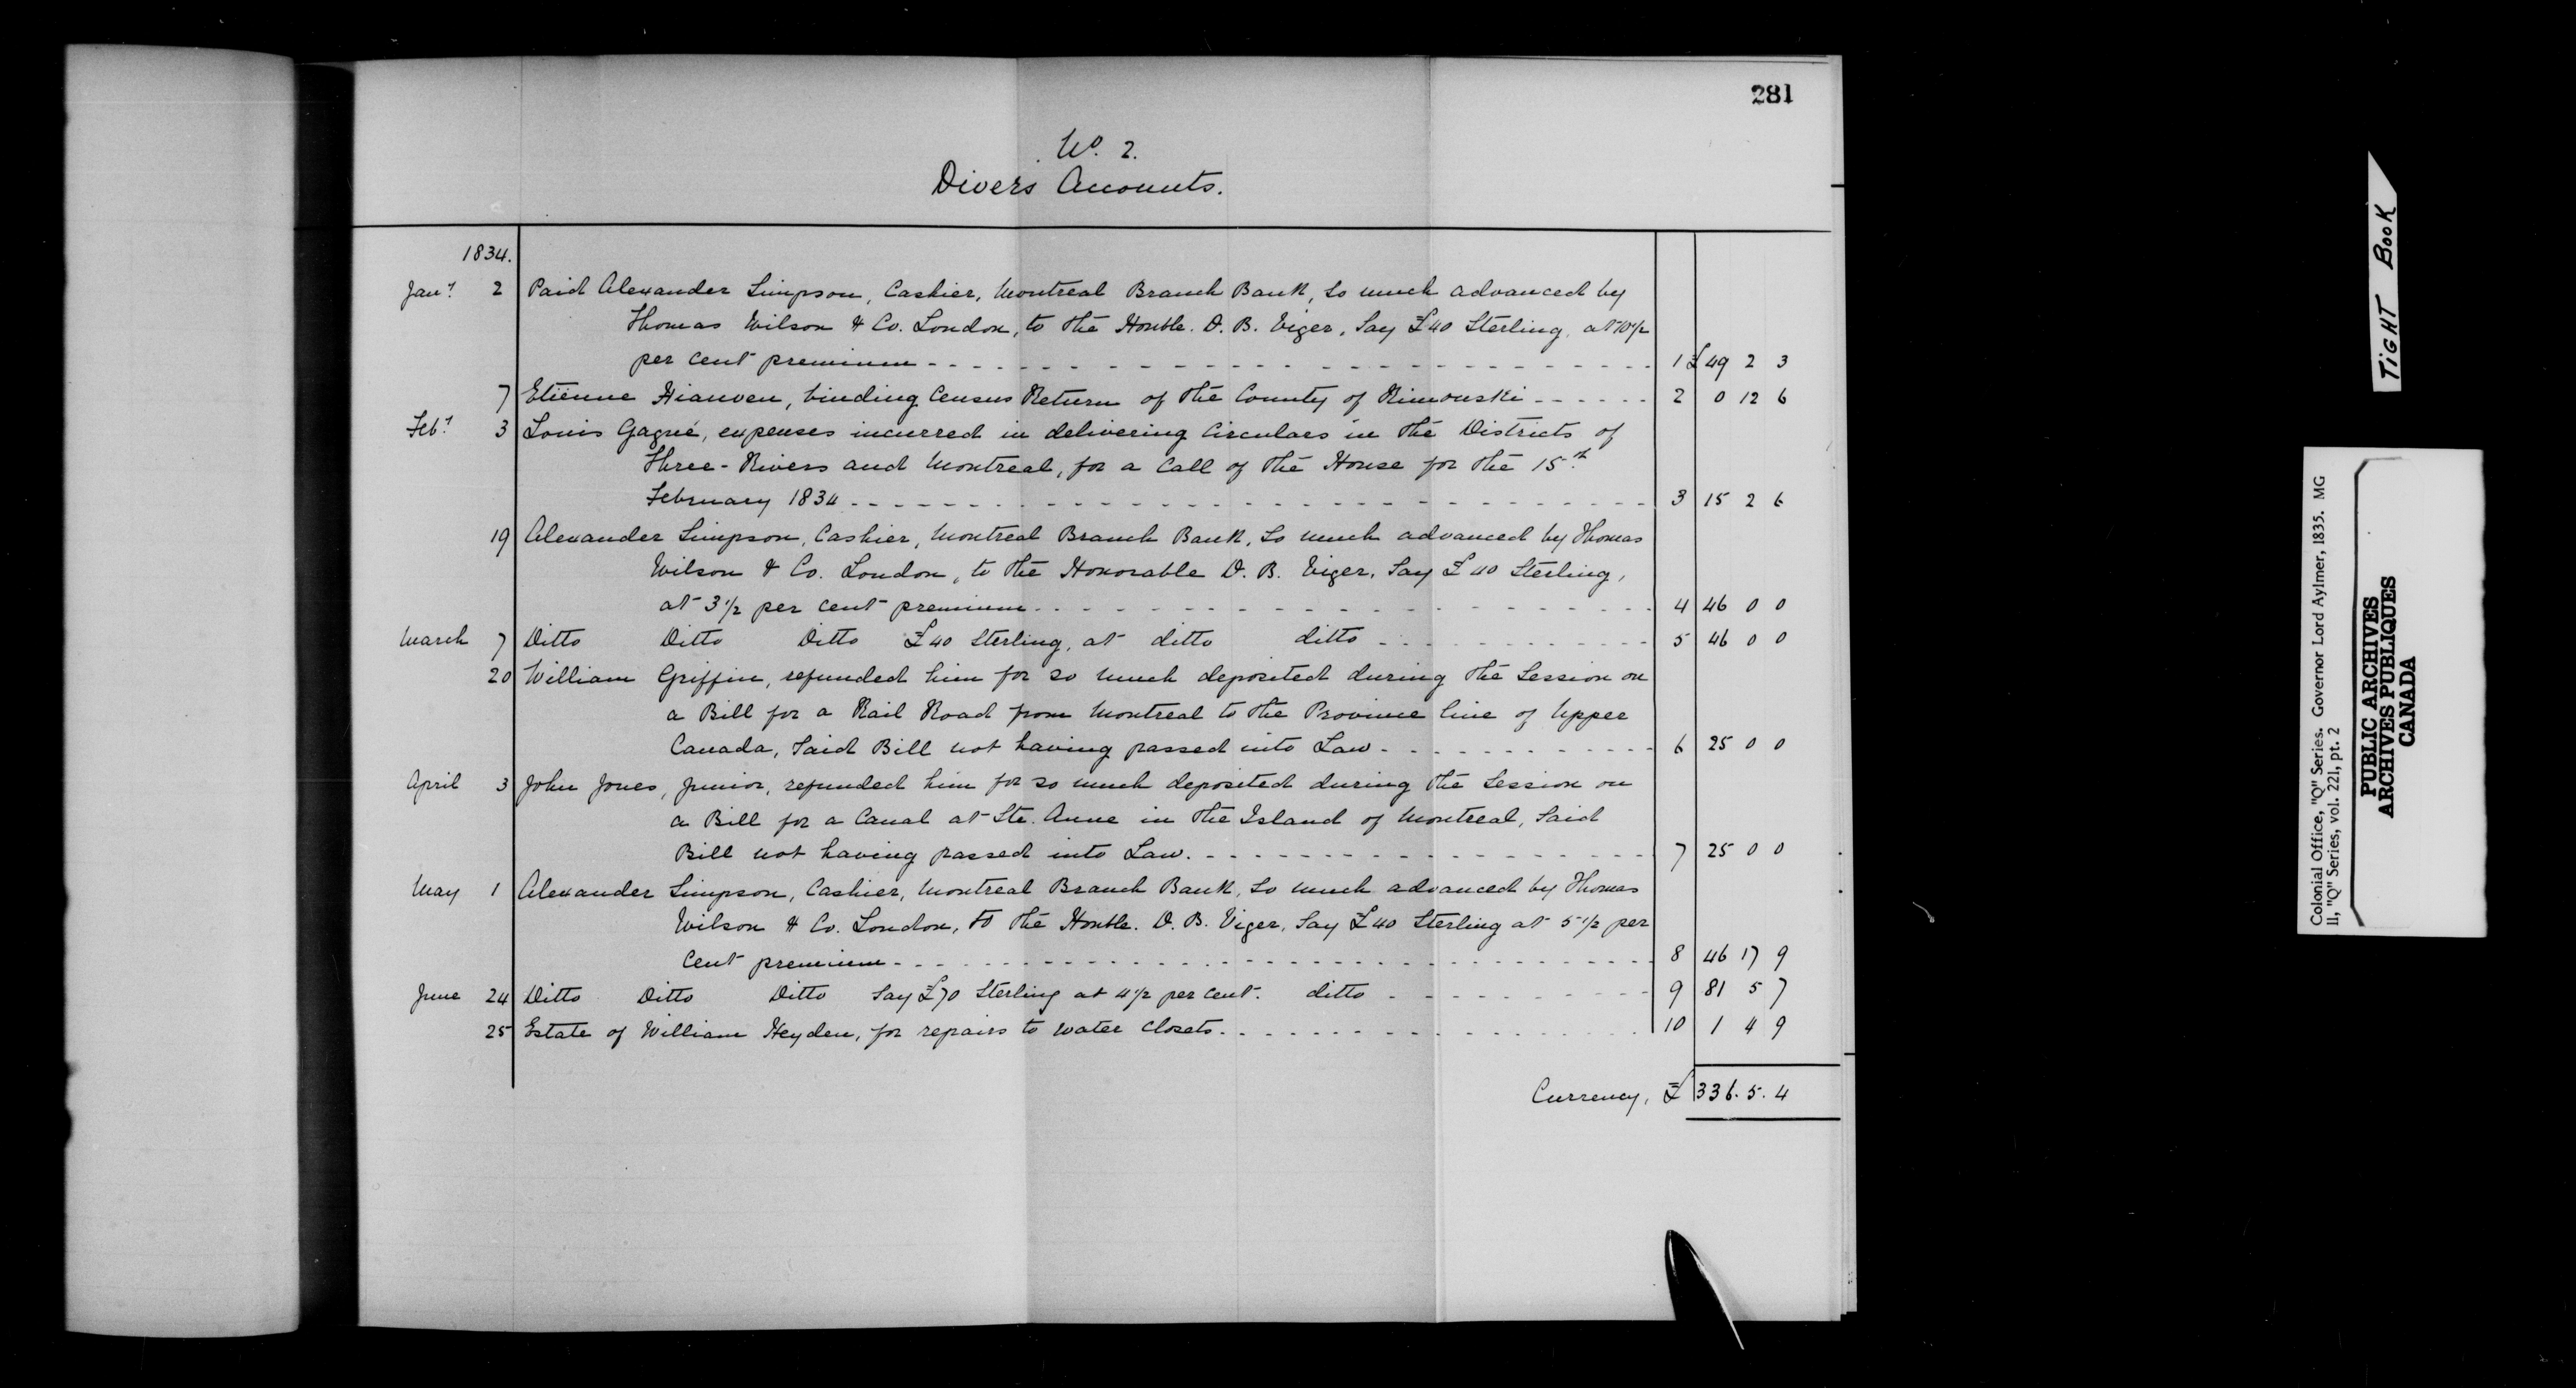 281
No. 2.
Divers Accounts.
1834.
Jany. 2 Paid Alexander Simpson, Cashier, Montreal Branch Bank, so much advanced by
Thomas Wilson & Co. London, to the Honble. D. B. Viger, Say £40 Sterling, at 10 1/2
per cent premium - - - 1 £ 49 2 3
7 Etiènne Hianven, binding Census Return of the County of Rimouski - - - 2 0 12 6
Feby. 3 Louis Gagné, expenses incurred in delivering Circulars in the Districts of
Three-Rivers and Montreal, for a Call of the House for the 15th.
February 1834 - - - 3 15 2 6
19 Alexander Simpson, Cashier, Montreal Branch Bank, so much advanced by Thomas
Wilson & Co. London, to the Honorable D. B. Viger, Say £40 Sterling,
at 3 1/2 per cent premium - - - 4 46 0 0
March 7 Ditto Ditto Ditto £40 Sterling, at ditto ditto - - - 5 46 0 0
20 William Griffin, refunded him for so much deposited during the Session on
a Bill for a Rail Road from Montreal to the Province line of Upper
Canada, Said Bill not having passed into Law - - - 6 25 0 0
April 3 John Jones, Junior, refunded him for so much deposited during the Session on
a Bill for a Canal at Ste. Anne in the Island of Montreal, Said
Bill not having passed into Law. - - - 7 25 0 0
May 1 Alexander Simpson, Cashier, Montreal Branch Bank, so much advanced by Thomas
Wilson & Co. London, to the Honble. D. B. Viger, Say £40 Sterling at 5 1/2 per
cent premium - - - 8 46 17 9
June 24 Ditto Ditto Ditto Say £70 Sterling at 4 1/2 per cent. ditto - - - 9 81 5 7
25 Estate of William Heyden, for repairs to water closets - - - 10 1 4 9
Currency, £ 336. 5. 4
TIGHT BOOK
Colonial Office, "Q" Series. Governor Lord Aylmer, 1835. MG
11, "Q" Series, vol. 221, pt. 2
PUBLIC ARCHIVES
ARCHIVES PUBLIQUES
CANADA